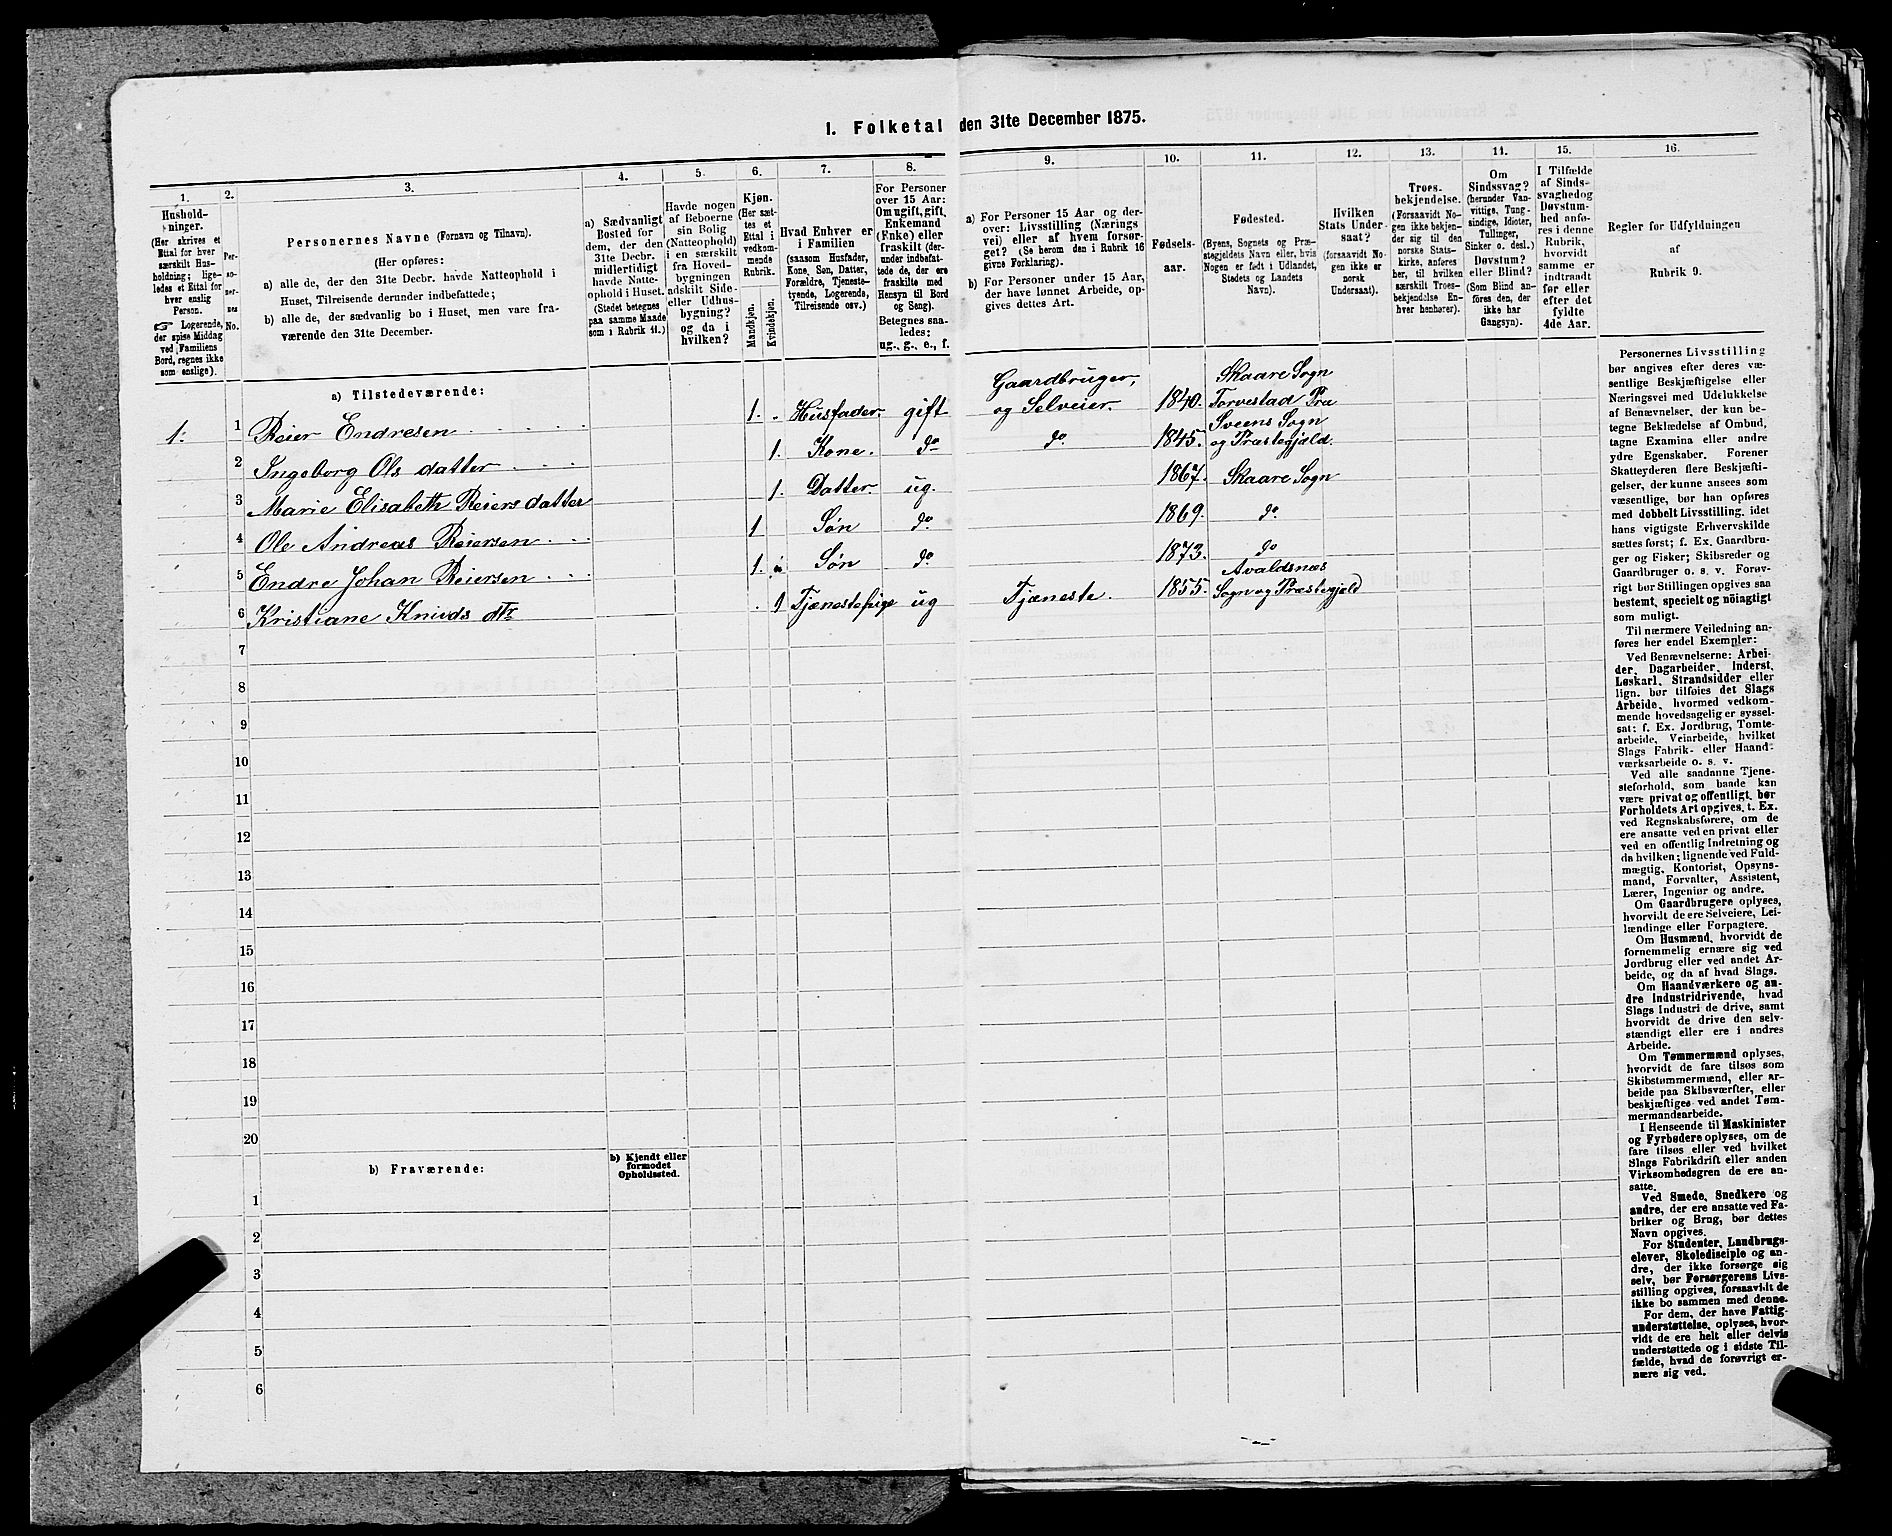 1. Folketal den 31te December 1875.
1.
Hushold-
ninger.
(Her skrives et
Ettal for hver
særskilt Hus-
holdning; lige-
ledes et Ettal for
hver enslig
Person.
☞ Logerende,
der spise Middag
ved Familiens
Bord, regnes ikke
som enslige).
2.
Per-
so-
ner-
nes
No.
3.
Personernes Navne (Fornavn og Tilnavn).
(Her opføres:
a) alle de, der den 31te Decbr. havde Natteophold i
Huset, Tilreisende derunder indbefattede;
b) alle de, der sædvanlig bo i Huset, men vare fra-
værende den 31te December.
4.
a) Sædvanligt
Bosted for
dem, der den
31te Decbr.
midlertidigt
havde Natte-
ophold i Huset.
(Stedet betegnes
paa samme Maade
som i Rubrik 11.)
5.
Havde nogen
af Beboerne
sin Bolig
(Natteophold)
i en særskilt
fra Hoved-
bygningen
adskilt Side-
eller Udhus-
bygning?
og da i
hvilken?
6.
Kjøn.
(Her sæt-
tes et
Ettal i
vedkom-
mende
Rubrik.
Mandkjøn.
Kvindekjøn.
7.
Hvad Enhver er
i Familien
(saasom Husfader,
Kone, Søn, Datter,
Forældre, Tjeneste-
tyende, Logerende,
Tilreisende osv.)
8.
For Personer
over 15 Aar:
Om ugift, gift,
Enkemand
(Enke) eller
fraskilt (der-
under indbefat-
tede de, der ere
fraskilte med
Hensyn til Bord
og Seng).
Betegnes saa-
ledes:
ug., g., e., f.
9.
a) For Personer 15 Aar og der-
over: Livsstilling (Nærings-
vei) eller af hvem forsør-
get? (Se herom den i Rubrik 16
givne Forklaring).
b) For Personer under 15 Aar,
der have lønnet Arbeide, op-
gives dettes Art.
10.
Fødsels-
aar.
11.
Fødested.
(Byens, Sognets og Præ-
stegjeldets Navn eller, hvis
Nogen er født i Udlandet,
Stedets og Landets
Navn).
12.
Hvilken
Stats Under-
saat?
(forsaavidt No-
gen ikke er
norsk
Undersaat).
13.
Troes-
bekjendelse.
(Forsaavidt No-
gen ikke bekjen-
der sig til den
norske Stats-
kirke, anføres
her, til hvilken
særskilt Troes-
bekjendelse En-
hver henhører).
14.
Om
Sindssvag?
(herunder Van-
vittige, Tung-
sindige, Idioter,
Tullinger,
Sinker o. desl.)
Døvstum?
eller Blind?
(Som Blind an-
føres den, der
ikke har
Gangsyn).
15.
I Tilfælde
af Sinds-
svaghed og
Døvstum-
hed anfø-
res i denne
Rubrik,
hvorvidt
samme er
indtraadt
før eller
efter det
fyldte
4de Aar.
16.
Regler for Udfyldningen
af
Rubrik 9.
a) Tilstedeværende:
1. 1 Reier Endresen 1. Husfader gift Gaardbruger, og Selveier. 1840. Skaare Sogn Torvestad Præ
2 Ingeborg Olsdatter 1. Kone. do do. 1845. Sveens Sogn og Præstegjeld.
3 Marie Elisabeth Reiersdatter 1. Datter. ug. 1867. Skaare Sogn
4 Ole Andreas Reiersen 1 Søn do 1869. do.
5 Endre Johan Reiersen 1. Søn do 1873. do
6 Kristiane Knuds dtr 1 Tjenestepige ug Tjæneste. 1855. Avaldsnæs Sogn og Præstegjeld
7
8
9
10
11
12
13
14
15
16
17
18
19
20
b) Fraværende:
b) Kjendt eller
formodet
Opholdssted.
1
2
3
4
5
6
Personernes Livsstilling
bør angives efter deres væ-
sentlige Beskjæftigelse eller
Næringsvei med Udelukkelse
af Benævnelser, der kun be-
tegne Beklædelse af Ombud,
tagne Examina eller andre
ydre Egenskaber. Forener
Skatteyderen flere Beskjæfti-
gelser, der kunne ansees som
væsentlige, bør han opføres
med dobbelt Livsstilling, idet
hans vigtigste Erhvervskilde
sættes først; f. Ex. Gaardbru-
ger og Fisker; Skibsreder og
Gaardbruger o. s. v. Forøv-
rigt bør Stillingen opgives saa
bestemt, specielt og nöiagtigt
som muligt.
Til nærmere Veiledning an-
føres her endel Exempler:
Ved Benævnelserne: Arbei-
der, Dagarbeider, Inderst,
Løskarl, Strandsidder eller
lign. bør tilføies det Slags
Arbeide, hvormed vedkom-
mende hovedsagelig er syssel-
sat: f. Ex. Jordbrug, Tomte-
arbeide, Veiarbeide, hvilket
Slags Fabrik- eller Haand-
værksarbeide o. s. v.
Ved alle saadanne Tjene-
steforhold, som baade kan
være privat og offentligt, bør
Forholdets Art opgives, t. Ex.
ved Regnskabsførere, om de
ere ansatte ved en privat eller
ved en offentlig Indretning og
da hvilken; lignende ved Fuld-
mægtig, Kontorist, Opsyns-
mand, Forvalter, Assistent,
Lærer, Ingeniør og andre.
Om Gaardbrugere oplyses,
hvorvidt de ere Selveiere, Lei-
lændinge eller Forpagtere.
Om Husmænd, hvorvidt de
fornemmelig ernære sig ved
Jordbrug eller ved andet Ar-
beide, og da af hvad Slags.
Om Haandværkere og an-
dre Industridrivende, hvad
Slags Industri de drive, samt
hvorvidt de drive den selv-
stændigt eller ere i andres
Arbeide.
Om Tømmermænd oplyses,
hvorvidt de fare tilsøs som
Skibstømmermænd, eller ar-
beide paa Skibsværfter, eller
beskjæftiges ved andet Tøm-
mermandsarbeide.
I Henseende til Maskinister
og Fyrbødere oplyses, om de
fare tilsøs eller ved hvilket
Slags Fabrikdrift eller anden
Virksomhedsgren de ere an-
satte.
Ved Smede, Snedkere og
andre, der ere ansatte ved Fa-
briker og Brug, bør dettes
Navn opgives.
For Studenter, Landbrugs-
elever, Skoledisciple og an-
dre, der ikke forsørge sig
selv, bør Forsørgerens Livs-
stilling opgives, forsaavidt de
ikke bo sammen med denne.
For dem, der have Fattig-
understøttelse, oplyses, hvor-
vidt de ere helt eller delvis
understøttede og i sidste Til-
fælde, hvad de forøvrigt er-
nære sig ved.